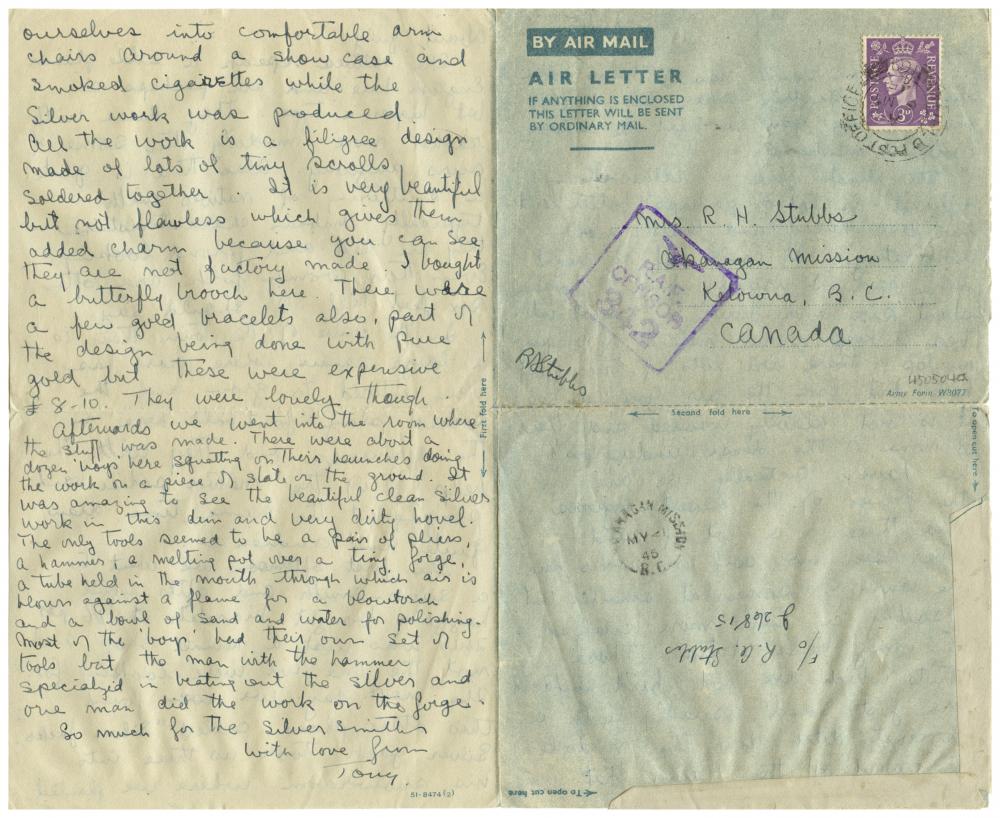 ourselves into comfortable arm
chairs around a show case and
smoked cigarettes while the
silver work was produced.
All the work is a filigree design
made of lots of tiny scrolls
soldered together. It is very beautiful
but not flawless which gives them
added charm because you can see
they are not factory made. I bought
a butterfly brooch here. There were
a few gold bracelets also, part of
the design being done with pure
gold but these were expensive
£8-10. They were lovely though.
Afterwards we went into the room where
the stuff was made. There were about a
dozen 'boys' here squatting on their haunches doing
the work on a piece of slate on the ground. It
was amazing to see the beautiful clean silver
work in this dim and very dirty hovel.
The only tools seemed to be a pair of pliers,
a hammer, a melting pot over a tiny forge,
a tube held in the mouth through which air is
blown against a flame for a blowtorch
and a bowl of sand and water for polishing.
Most of the 'boys' had their own set of
tools but the man with the hammer
specialized in beating out the silver and
one man did the work on the forge.
So much for the silver smiths
With love from
Tony.
51-8474(2)
First fold here
BY AIR MAIL
AIR LETTER
IF ANYTHING IS ENCLOSED
THIS LETTER WILL BE SENT
BY ORDINARY MAIL.
POSTAGE REVENUE
3D
POST OFFICE
Mrs. R. H. Stubbs
Okanagan Mission
Kelowna, B.C.
Canada
R.A.F.
CENSOR
342
RAStubbs
450504a
Army Form W3077
Second fold here
To open cut here
OKANAGAN MISSION
MY
45
B.C.
F/O R.A. Stubbs
J26815
To open cut here